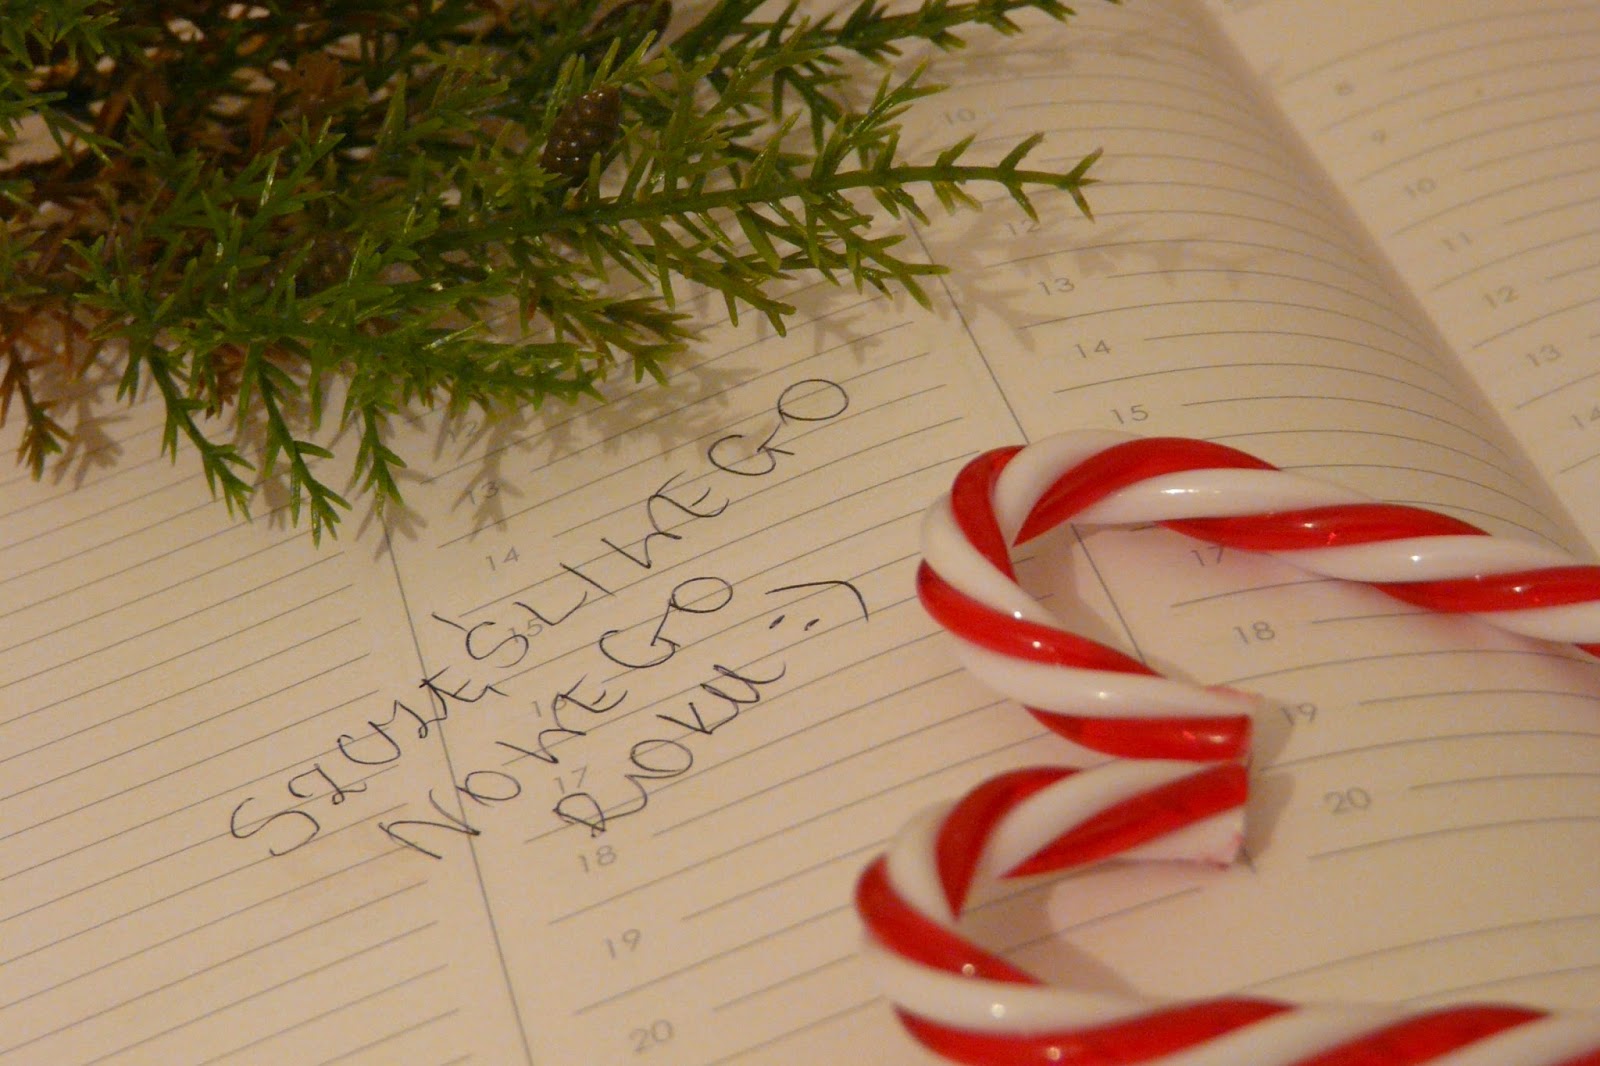 SZCZĘŚLIWEGO
NOWEGO
ROKU :)
12
13
14
15
16
17
18
19
20
10
12
13
14
15
17
18
19
20
8
9
10
11
12
13
14